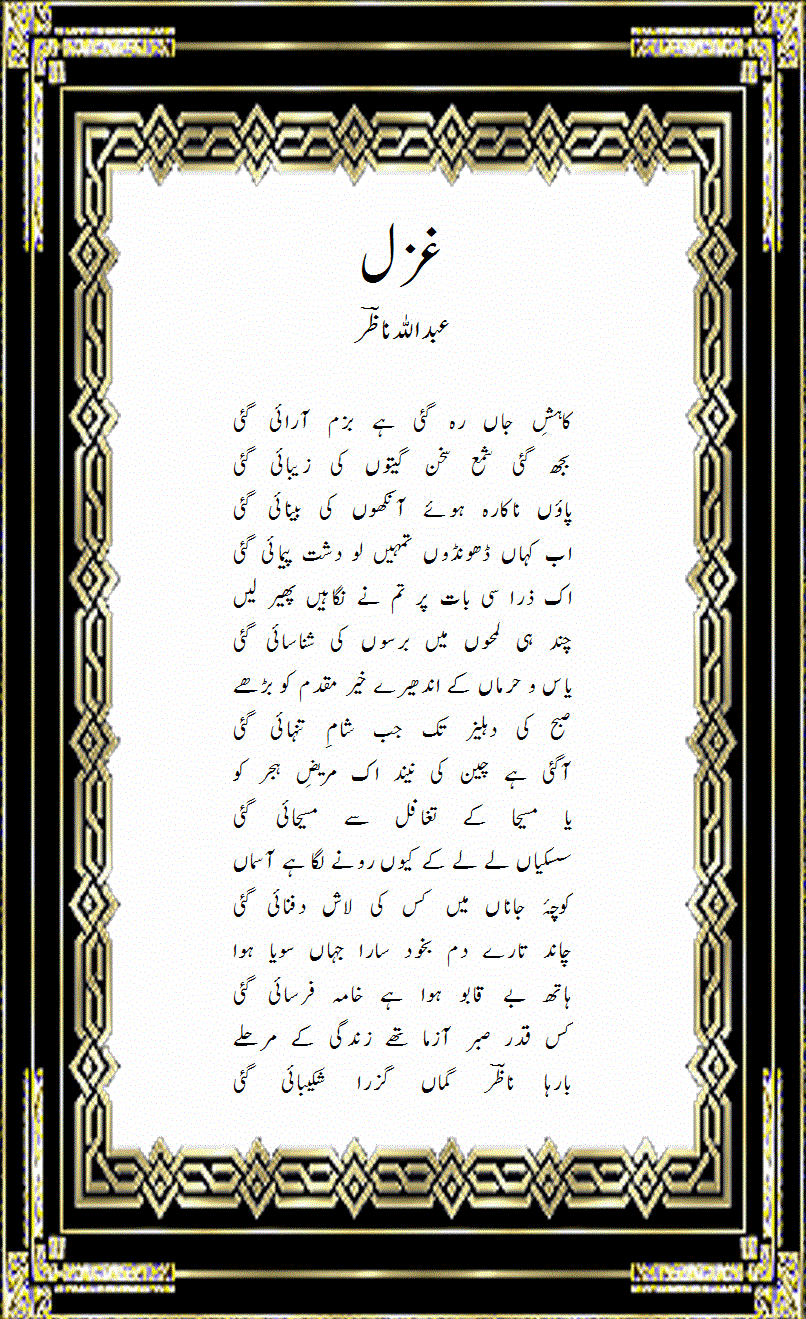 غزل
عبداللہ ناظرؔ
کاہشِ جاں رہ گئی ہے بزم آرائی گئی
بجھ گئی شمع سخن گیتوں کی زیبائی گئی
پاؤں ناکارہ ہوئے آنکھوں کی بینائی گئی
اب کہاں ڈھونڈوں تمہیں لو دشت پیمائی گئی
اک ذرا سی بات پر تم نے نگاہیں پھیر لیں
چند ہی لمحوں میں برسوں کی شناسائی گئی
یاس و حرماں کے اندھیرے خیر مقدم کو بڑھے
صبح کی دہلیز تک جب شامِ تنہائی گئی
آگئی ہے چین کی نیند اک مریضِ ہجر کو
یا مسیحا کے تغافل سے مسیحائی گئی
سسکیاں لے لے کے کیوں رونے لگا ہے آسماں
کوچۂ جاناں میں کس کی لاش دفنائی گئی
چاند تارے دم بخود سارا جہاں سویا ہوا
ہاتھ بے قابو ہوا ہے خامہ فرسائی گئی
کس قدر صبر آزما تھے زندگی کے مرحلے
بارہا ناظرؔ گماں گزرا شکیبائی گئی